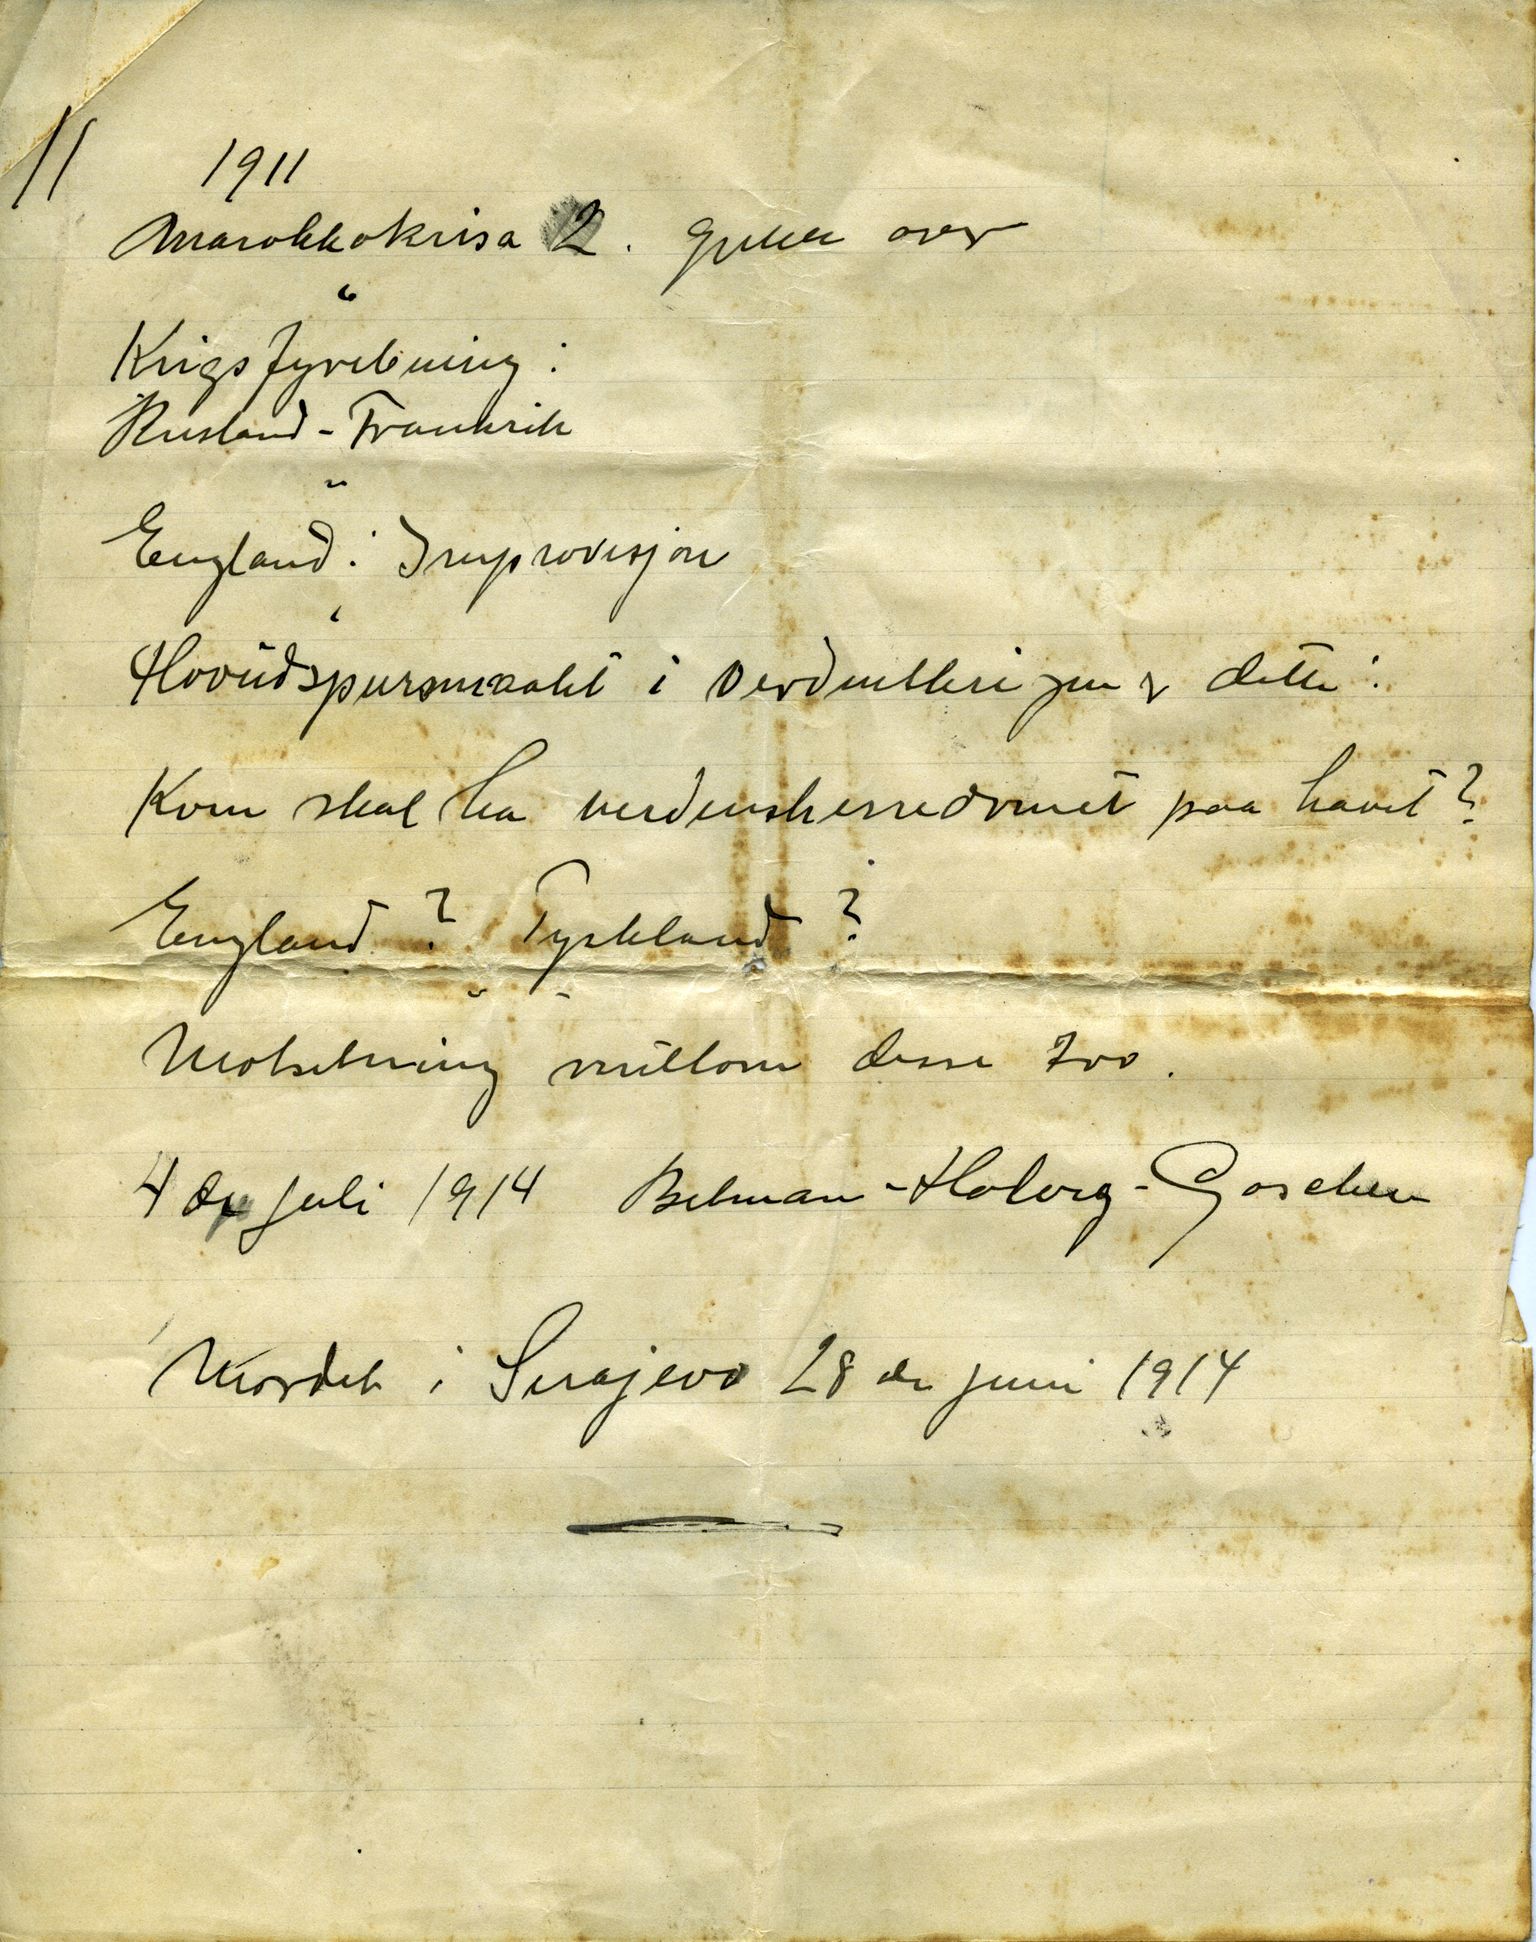 11 1911
Marokkokrisa 2. Gjekk over
"
Krigsfyrebuing:
Rusland-Frankrik
"
England: Improvisjon
"
Hovudspursmaalet i verdenskrigen er dette:
Kven skal ha verdensherredømet paa havet?
England? Tyskland?
" "
Motsetning millom desse tvo.
4 de juli 1914 Betman-Holveg-Goschen
Mordet i Serajevo 28 de juni 1914